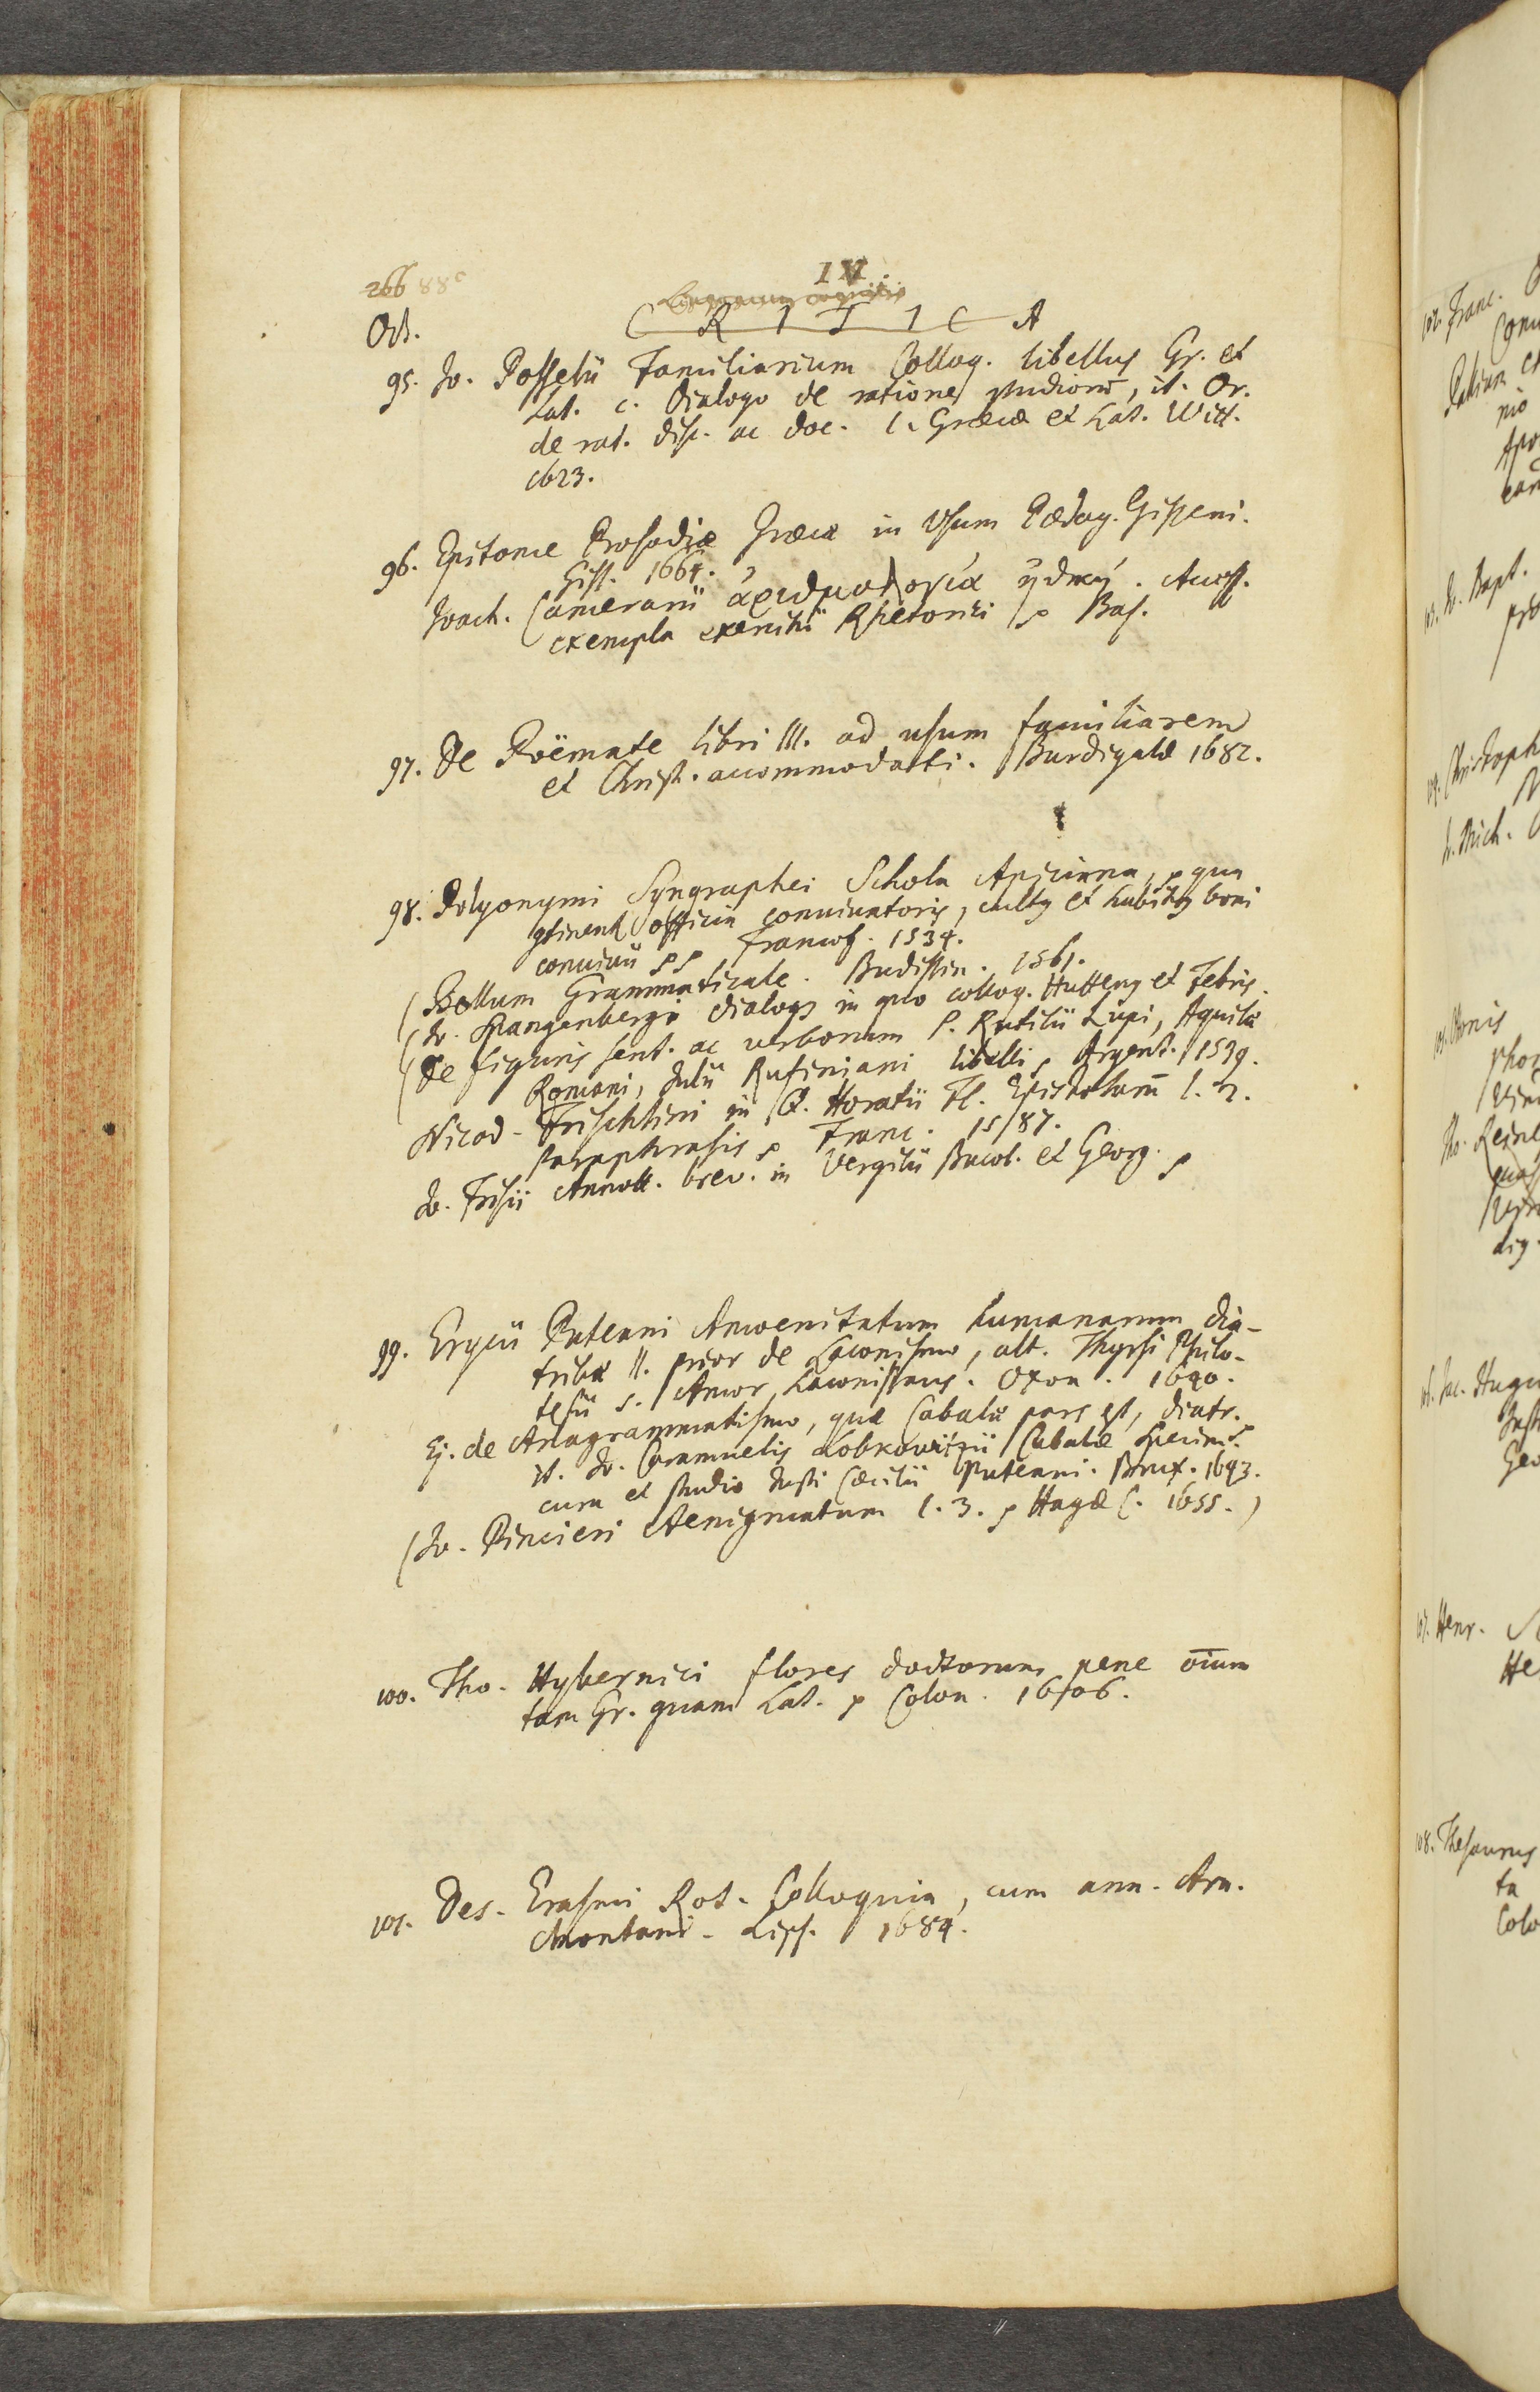 266 88c
IV.
Linguarum cognitio
Oct. CRITICA
95. Jo. Posselii Familiarium Colloq. libellus Gr. et
Lat. c. Dialogo de ratione studiorū, it. Or.
de rat. disc. ac doc. l. Græcæ et Lat. Witt.
1623.
96. Epitome Prosodiæ Græcæ in Usum Pædag. Gisseni.
Giss. 1664.
Joach. Camerarii ἀριθμολογία ἠθική. Auctt.
exempla exercitii Rhetorici p Bas.
97. De Poëmate libri III. ad usum familiarem
et Christ. accommodati. Burdigalæ 1682.
98. Polyonymi Syngraphei Schola Apiciana, ex qua
ɔtinent officia conviuatoris, cultq et habitq boni
conuiuii pp Francof. 1534.
(Bellum Grammaticale. Budissin. 1561.
(Jo. Spangenbergi dialogq in quo colloq. Huttenq et Febris.
(De figuris sent. ac verborum P. Rutilii Lupi, Aquilæ
Romani, Julii Rufiniani libelli p Argent. 1539.
Nicod. Frischlini in Q. Horatii Fl. Epistolarū l. 2.
paraphrasis p Franc. 1587.
Jo. Frisii Annott. brev. in Vergilii Bucol. et Georg. p
99. Erycii Puteani Amoenitatum humanarum dia-
tribæ II. prior de Laconismo, alt. Thyrsi Philo-
tesii s. Amor Laconissans. Oxon. 1640.
Ej. de Anagrammatismo, quæ Cabalæ pars est, diatr.
it. Jo. Caramuelis Lobkowitzii Cabalæ Specim.
cura et studio Justi Cæcilii Puteani. Brux. 1643.
(Jo. Pincieri Aenigmatum l. 3. p Hagæ C. 1655.)
100. Tho. Hybernici flores doctorum pene oīum
tam Gr. quam Lat. p Colon. 1606.
101. Des. Erasmi Rot. Colloquia, cum ann. Arn.
Montani. Lips. 1684.
102. Franc.
103. Jo. Bapt.
104. Christoph
J. Mich.
107. Henr.
108. Thesaurus